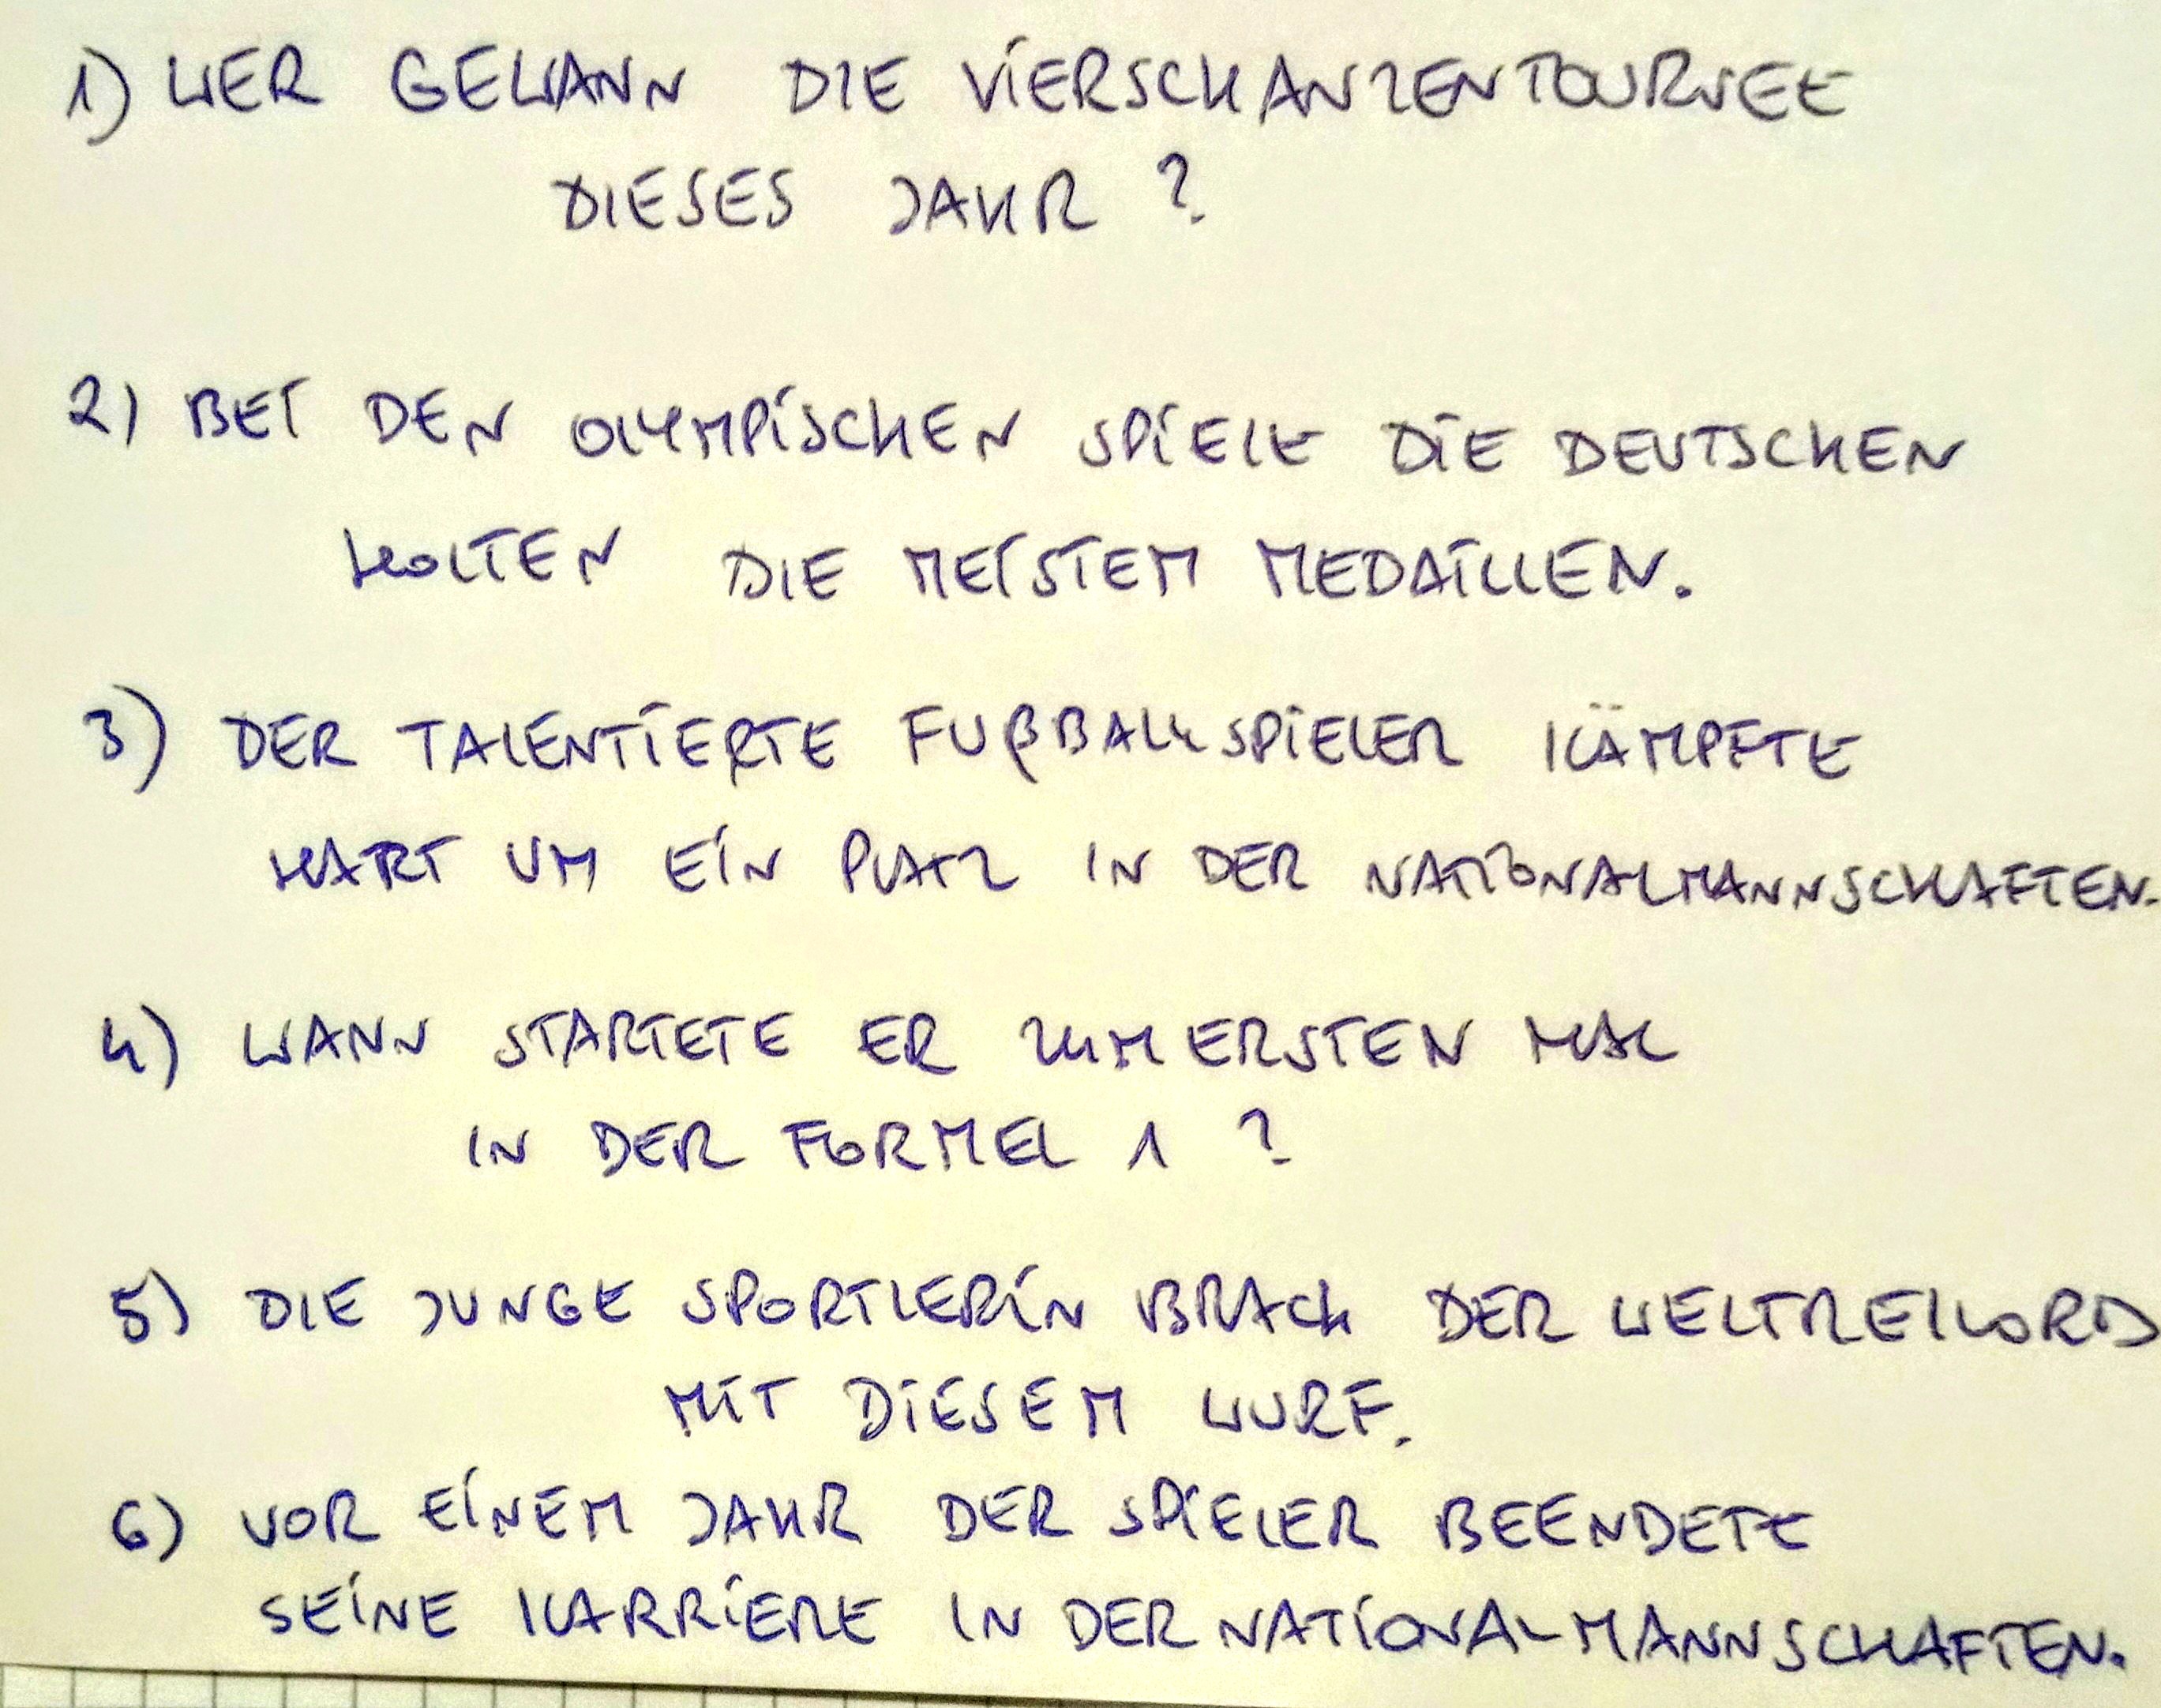 1) WER GEWANN DIE VIERSCHANZENTOURNEE
DIESES JAHR ?
2) BEI DEN OLYMPISCHEN SPIELE DIE DEUTSCHEN
HOLTEN DIE MEISTEM MEDAILLEN.
3) DER TALENTIERTE FUßBALLSPIELER KÄMPFTE
HART UM EIN PLATZ IN DER NATIONALMANNSCHAFTEN.
4) WANN STARTETE ER ZUM ERSTEN MAL
IN DER FORMEL 1 ?
5) DIE JUNGE SPORTLERIN BRACH DER WELTREKORD
MIT DIESEM WURF.
6) VOR EINEM JAHR DER SPIELER BEENDETE
SEINE KARRIERE IN DER NATIONALMANNSCHAFTEN.